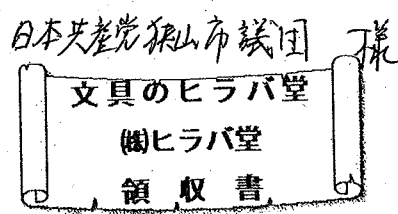 日本共産党狭山市議団 様
文具のヒラバ堂
㈱ヒラバ堂
領収書